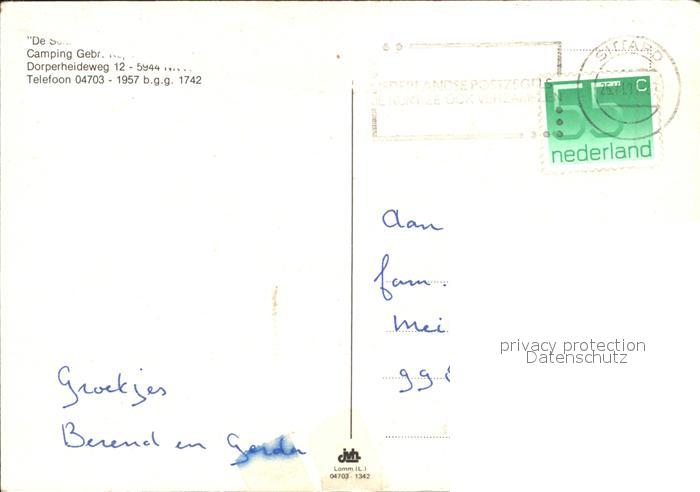 "De
Camping Gebr.
Dorperheideweg 12 - 5944
Telefoon 04703 - 1957 b.g.g. 1742
SITTARD
NEDERLANDSE POSTZEGELS
JE KUNT ZE OOK VERZAMELEN
55 c
nederland
Aan
fam.
Mei
privacy protection
Datenschutz
Groetjes
Berend en Gerda
jvh
Lomm (L.)
04703 - 1342